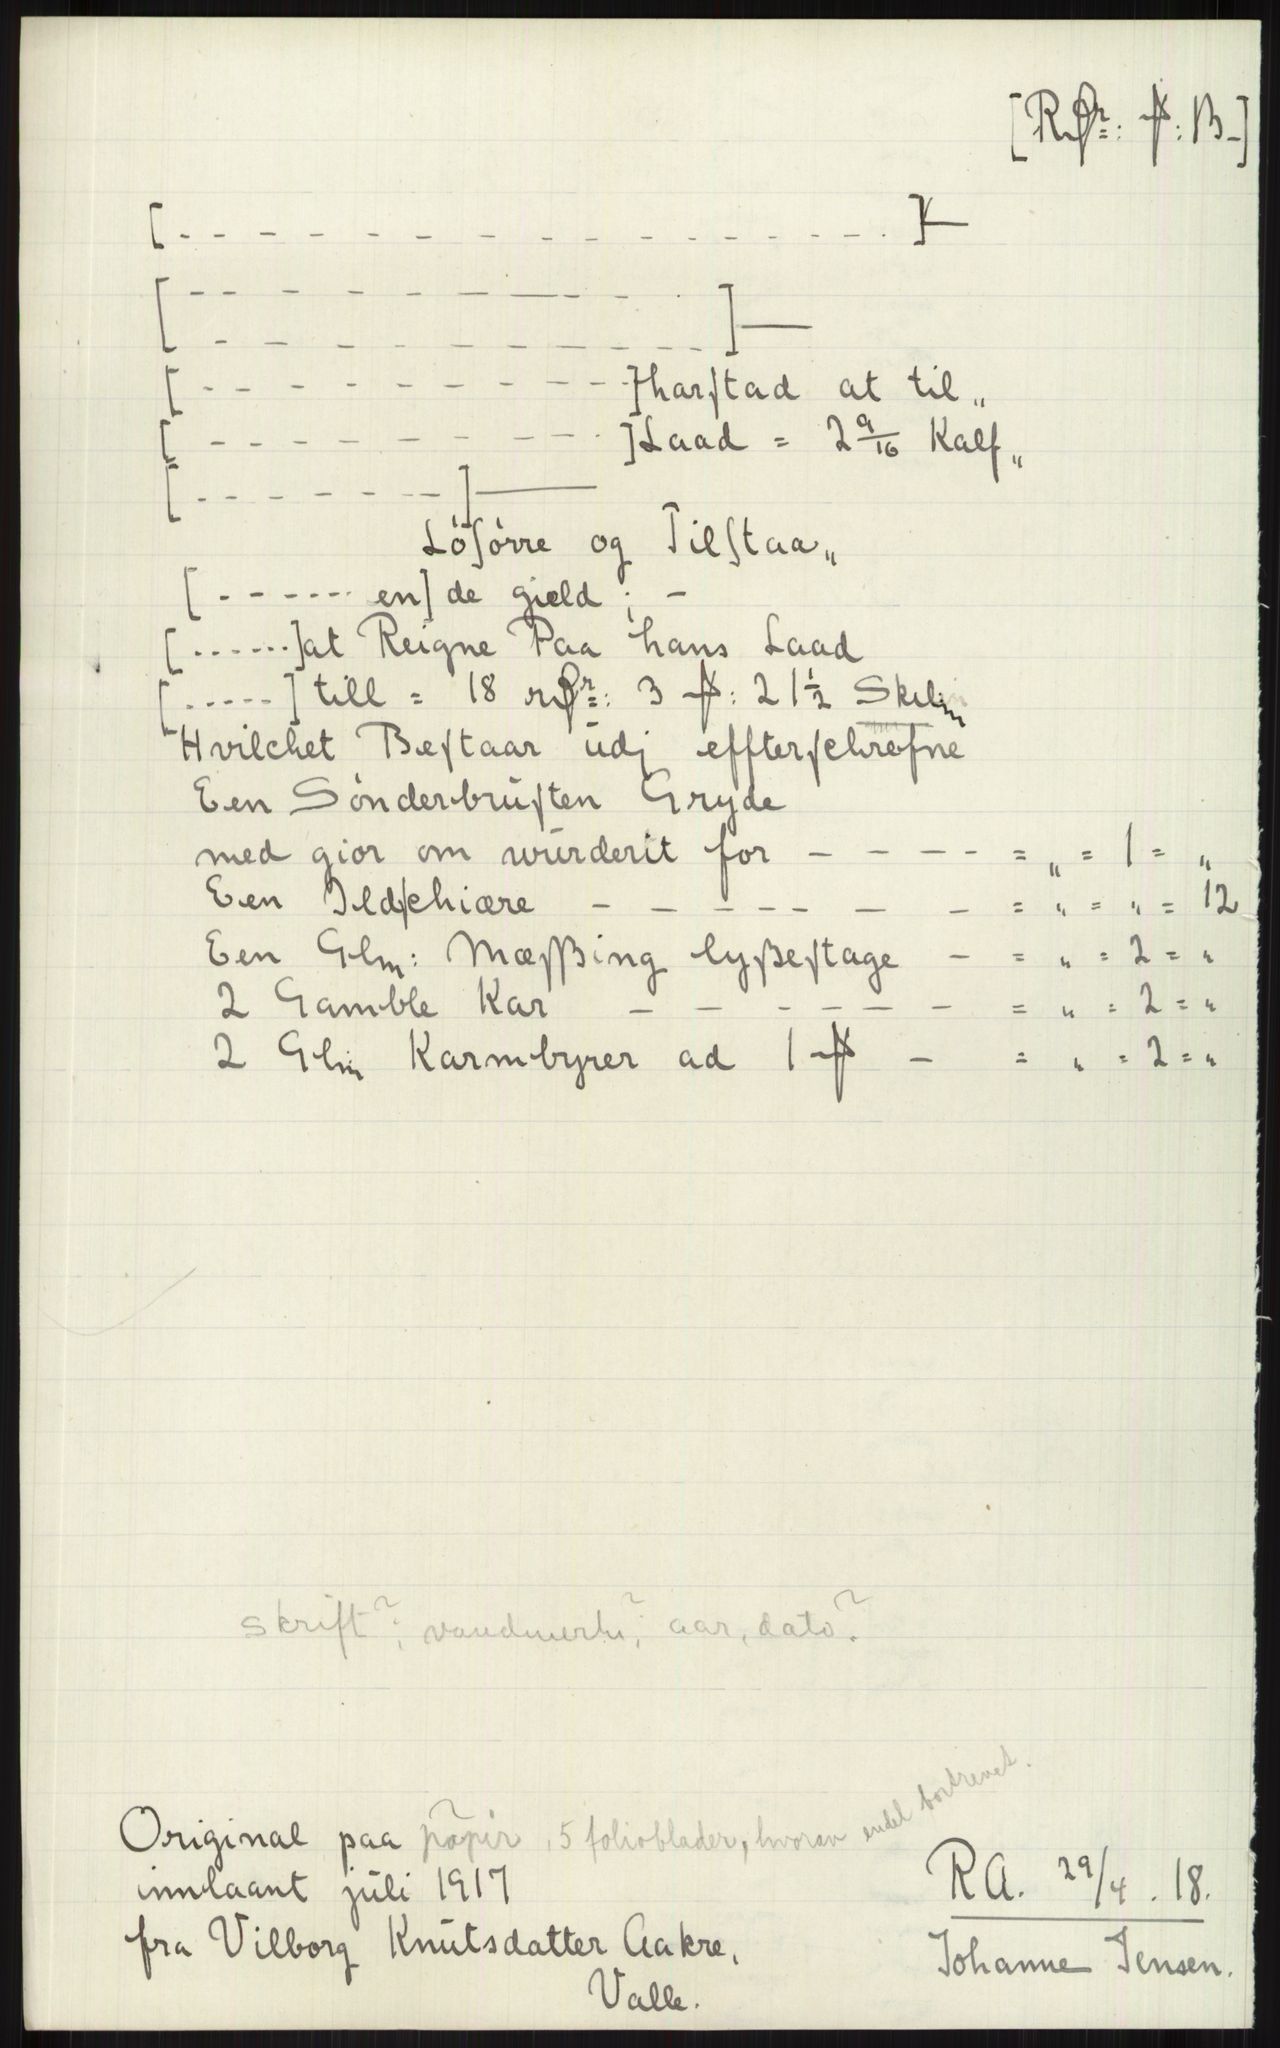 [Rdr: ₻: β-]
[- - - - - - - - - - - - - -]—
[- - - - - - - - - -
- - - - - - - - - -]—
[- - - - - - - - -]harſtad at til„
[- - - - - - - -]Laad = 2 9/16 Kalf„
[- - - - - - -]—
Löſörre og Tilſtaa„
[- - - - - - en]de gield ; -
[......]at Reigne Paa hans Laad
[.....] till = 18 rdr: 3 ₻: 21½ Skil
Hvilchet Beſtaar udj effterſchrefne
Een Sönderbruſten Gryde
med gior om wurderit for - - - - = „ = 1 = „
Een Ildſchiære - - - - - - - = „ = „ = 12
Een Glm: Mæſſβing lyβeſtage - = „ = 2 = „
2 Gamble Kar - - - - - - - = „ = 2 = „
2 Glm Karmbyrer ad 1 ₻ - = „ = 2 = „
skrift?; vandmerke?; aar, dato?
Original paa papir, 5 folioblader, hvorav endel bortrevet.
innlaant juli 1917
fra Vilborg Knutsdatter Aakre,
Valle.
RA. 29/4. 18.
Johanne Jensen.